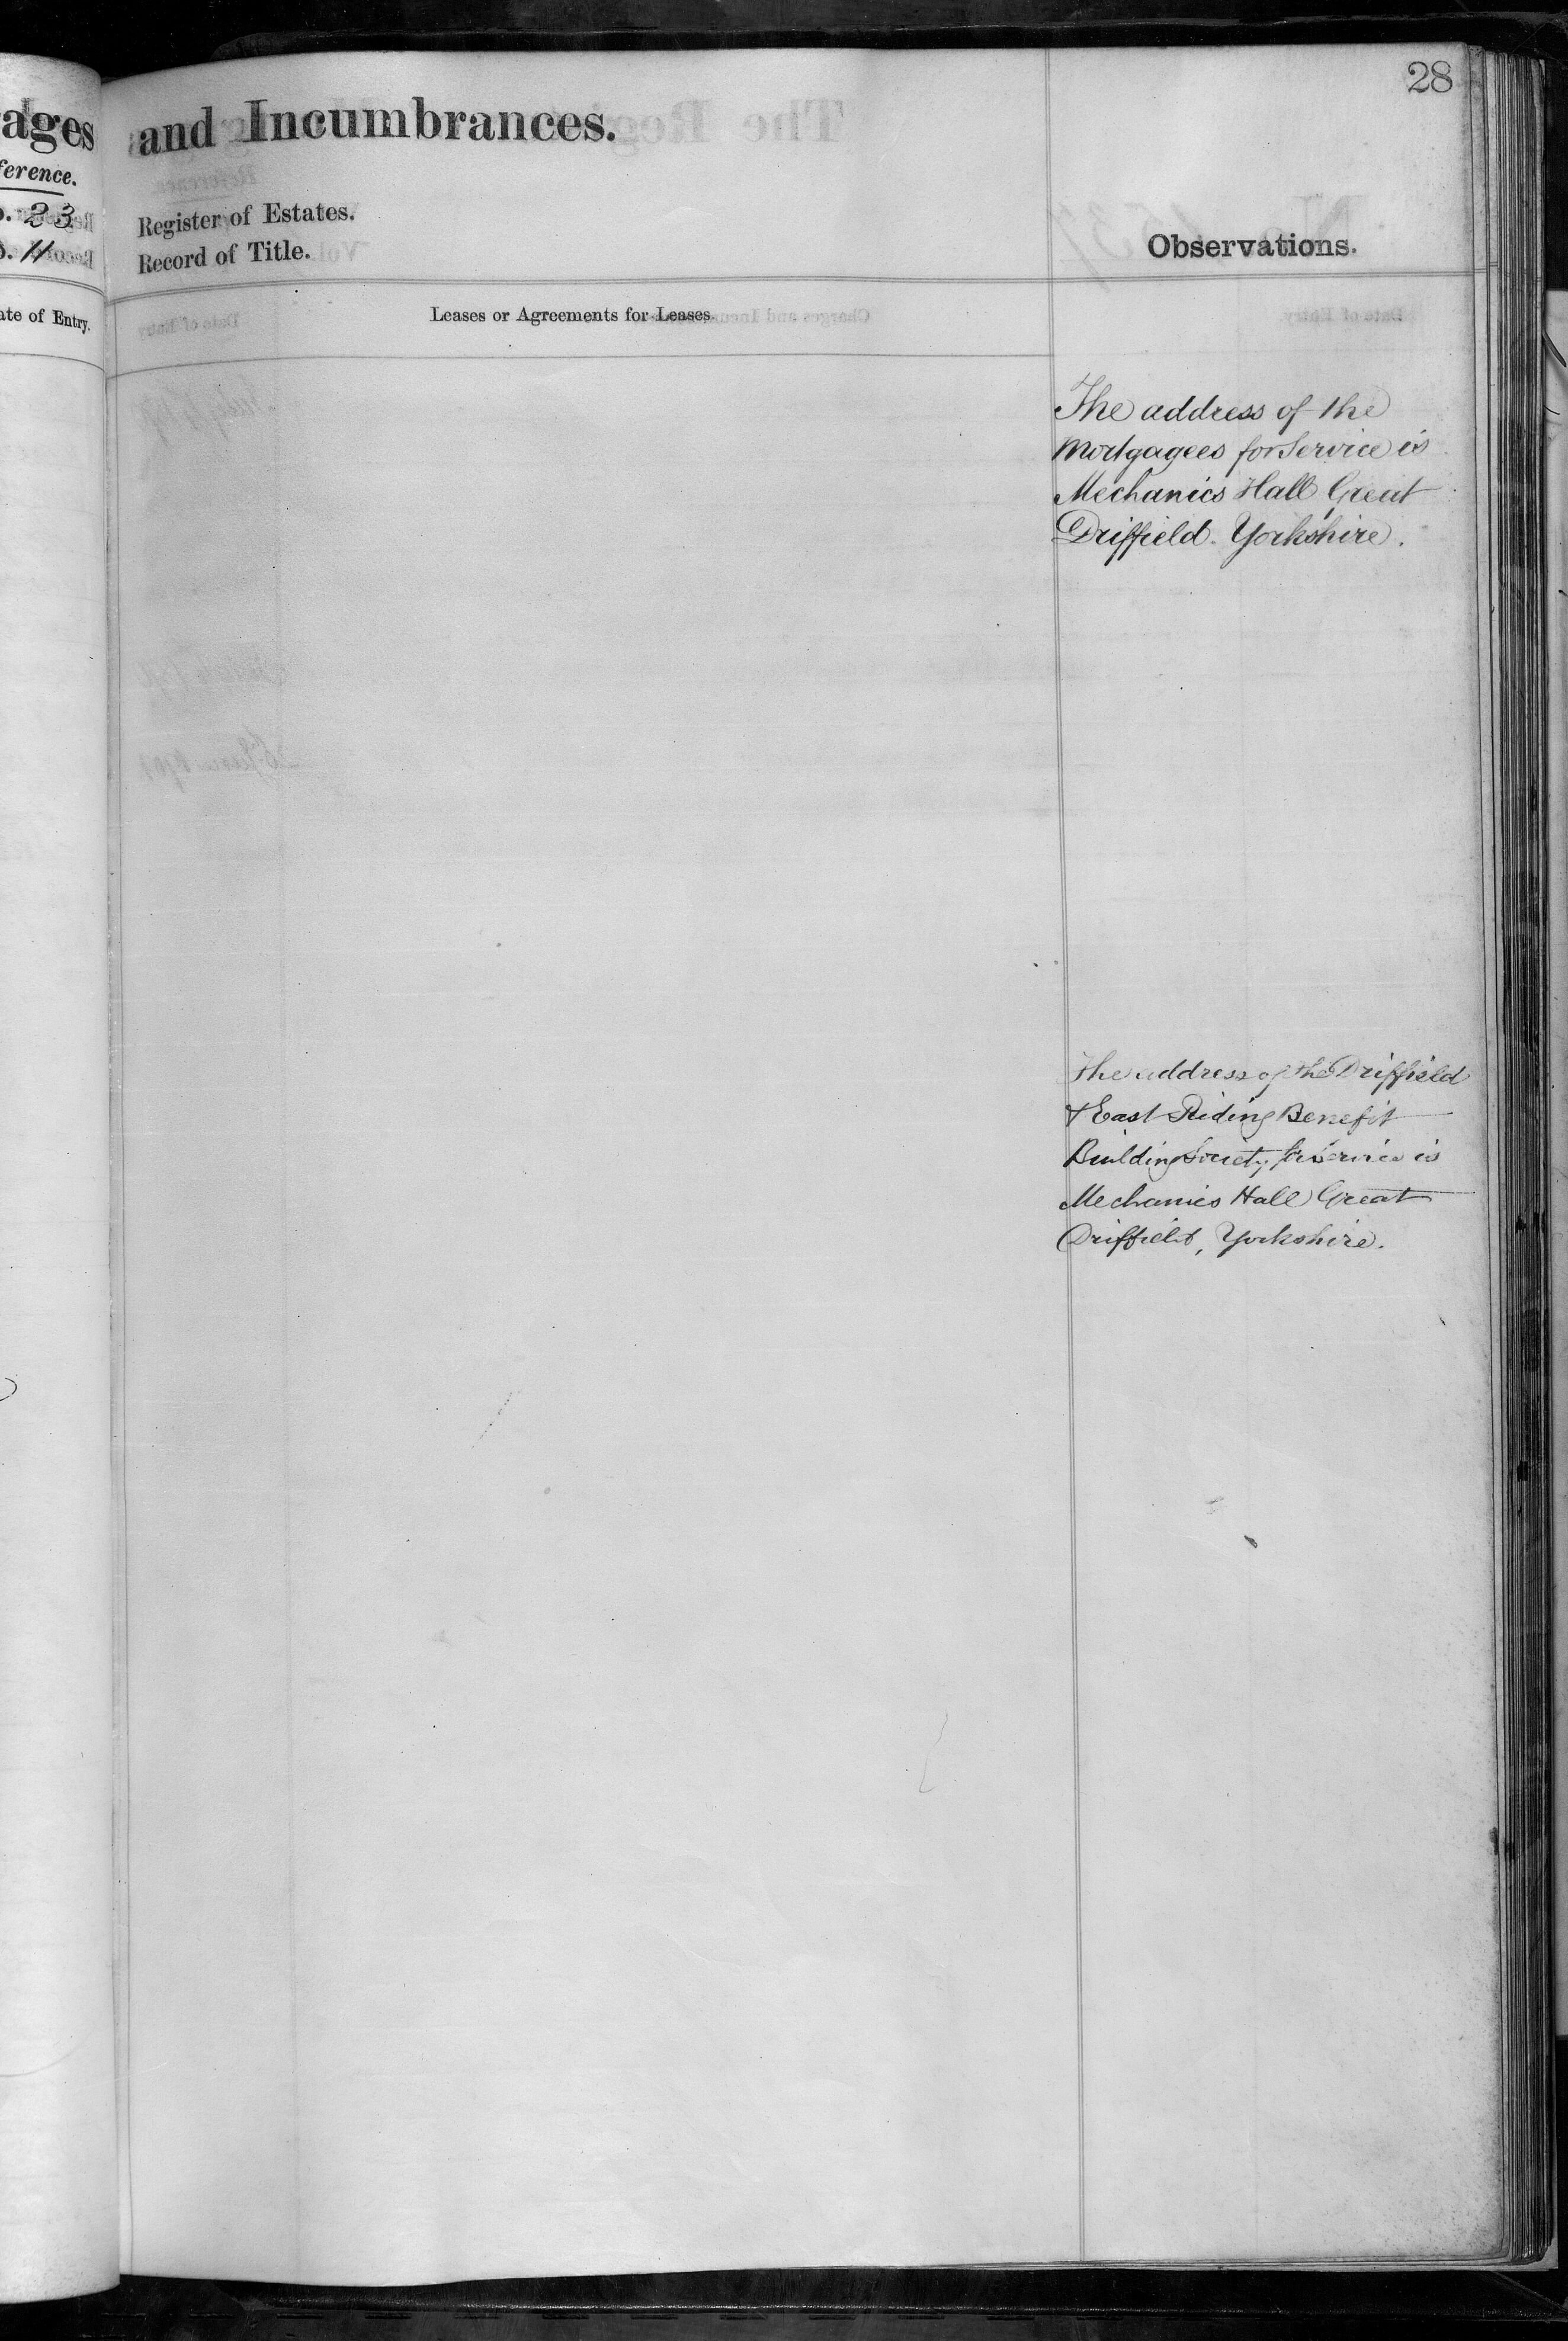 28
ages
ference.
. 23
. 11
ate of Entry.
and Incumbrances.
Register of Estates.
Record of Title.
Observations.
Leases or Agreements for Leases.
The address of the
Mortgagees for Service is
Mechanics Hall Great
Driffield. Yorkshire.
The address of the Driffield
& East Riding Benefit
Building Society for Service is
Mechanics Hall Great
Driffield, Yorkshire.